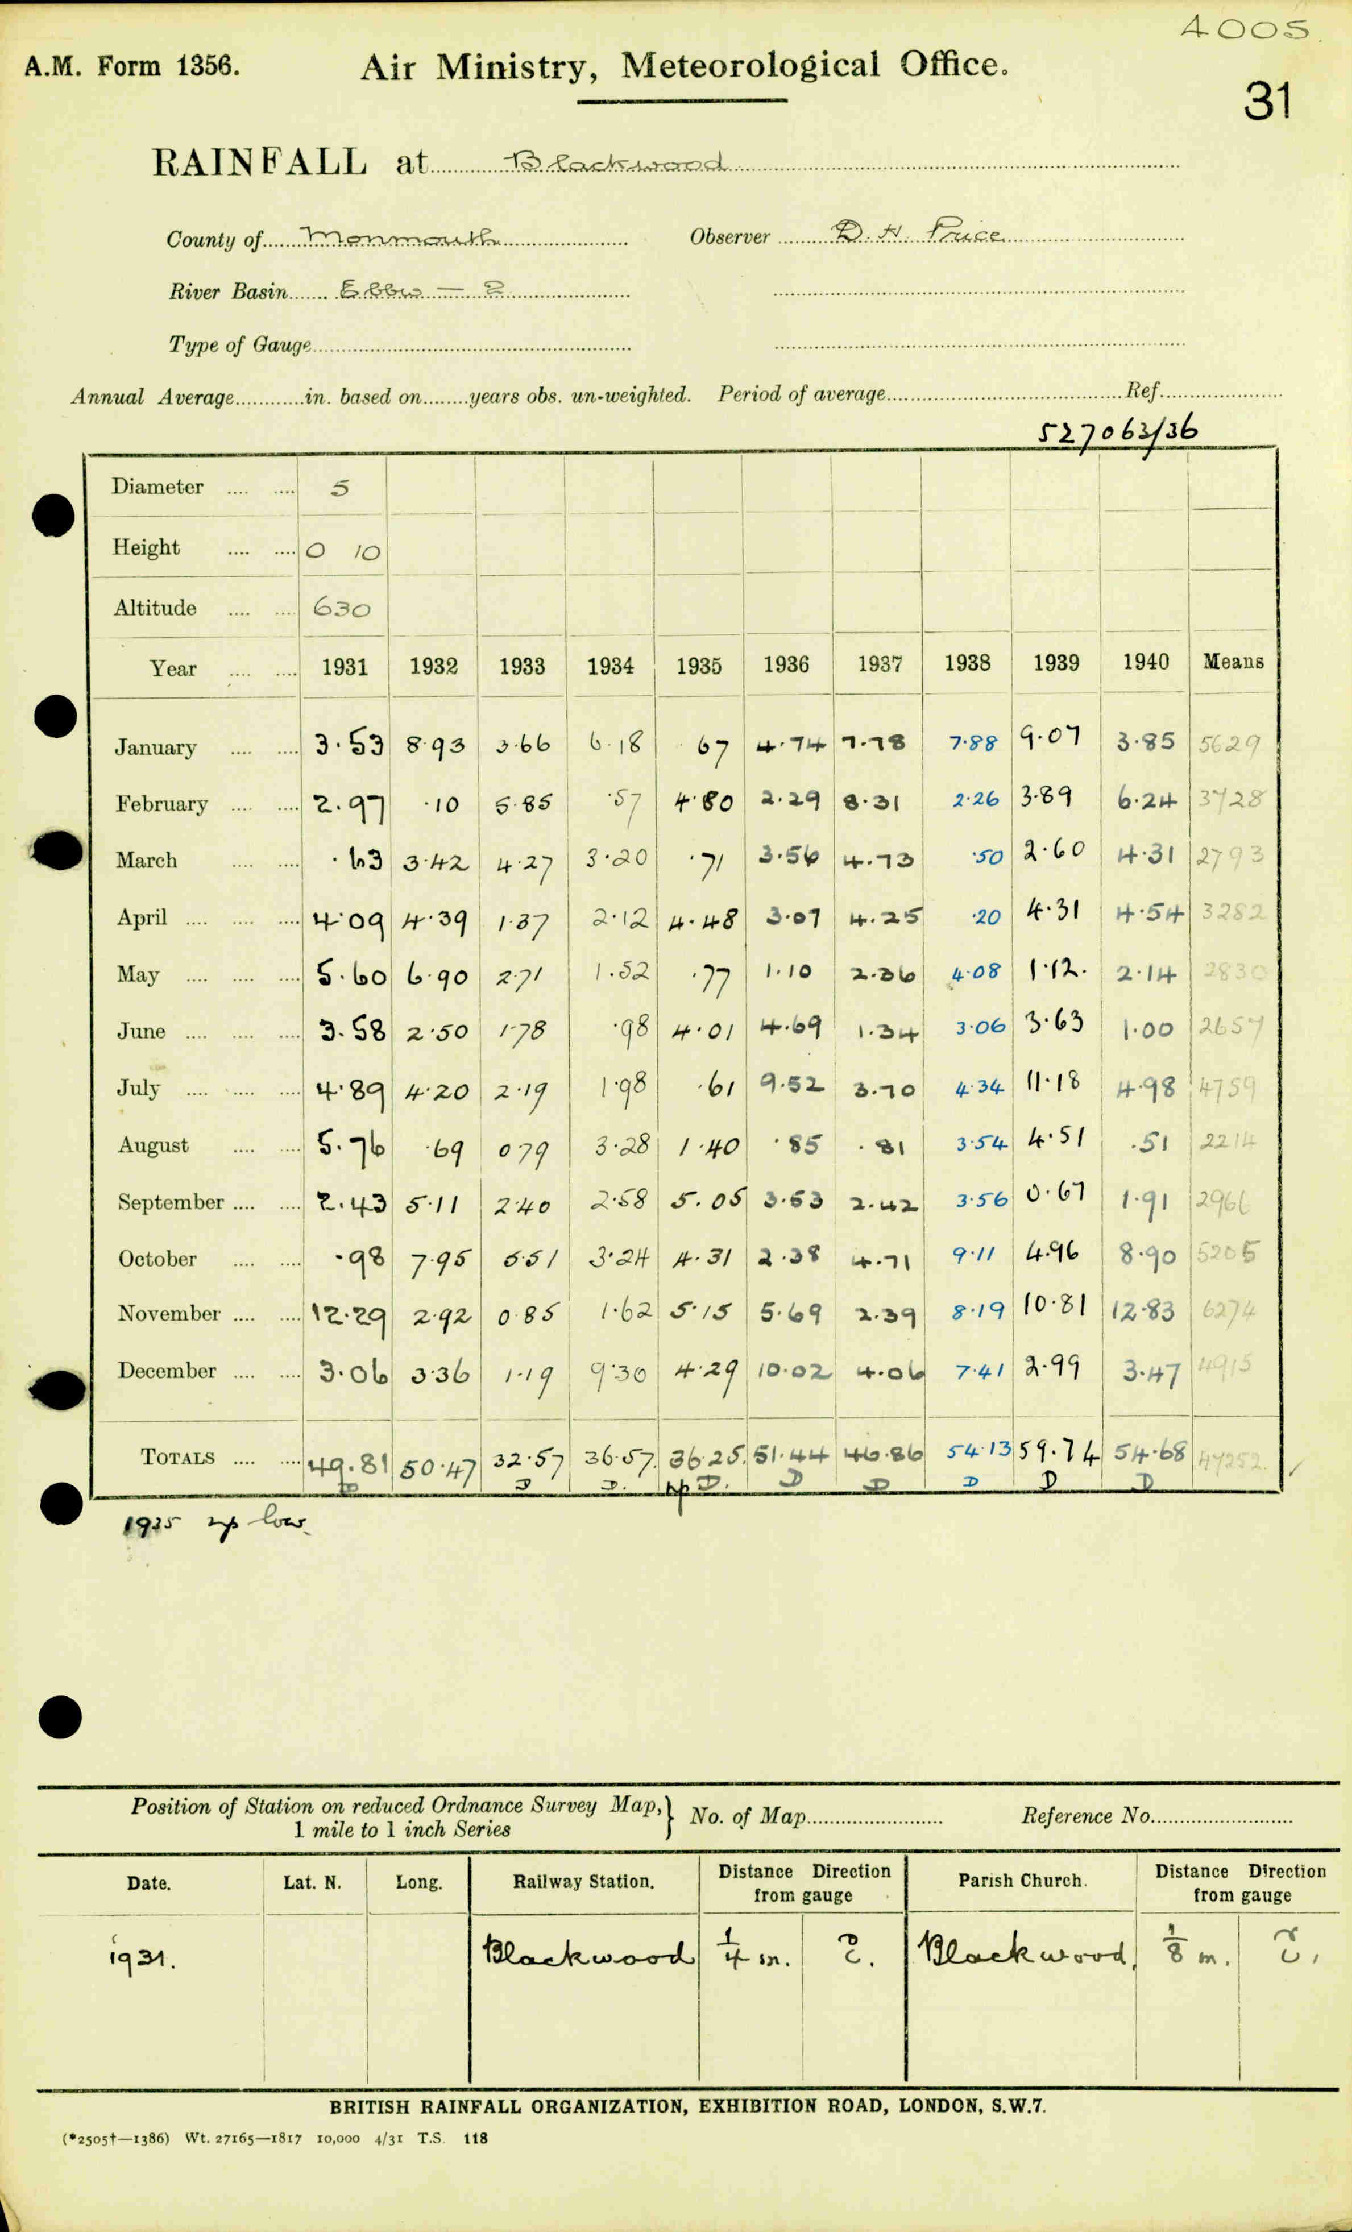 4005.
A.M. Form 1356. Air Ministry, Meteorological Office.
31
RAINFALL at Blackwood
County of Monmouth Observer D. H. Price
River Basin Ebbw — 2
Type of Gauge
Annual Average in. based on years obs. un-weighted. Period of average Ref.
527063/36
Diameter 5
Height 0 10
Altitude 630
Year 1931 1932 1933 1934 1935 1936 1937 1938 1939 1940 Means
January 3.53 8.93 3.66 6.18 .67 4.74 7.78 7.88 9.07 3.85 5629
February 2.97 .10 5.85 .57 4.80 2.29 8.31 2.26 3.89 6.24 3728
March .63 3.42 4.27 3.20 .71 3.56 4.73 .50 2.60 4.31 2793
April 4.09 4.39 1.37 2.12 4.48 3.07 4.25 .20 4.31 4.54 3282
May 5.60 6.90 2.71 1.52 .77 1.10 2.36 4.08 1.12. 2.14 2830
June 3.58 2.50 1.78 .98 4.01 4.69 1.34 3.06 3.63 1.00 2657
July 4.89 4.20 2.19 1.98 .61 9.52 3.70 4.34 11.18 4.98 4759
August 5.76 .69 0.79 3.28 1.40 .85 .81 3.54 4.51 .51 2214
September 2.43 5.11 2.40 2.58 5.05 3.53 2.42 3.56 0.67 1.91 2966
October .98 7.95 5.51 3.24 4.31 2.38 4.71 9.11 4.96 8.90 5205
November 12.29 2.92 0.85 1.62 5.15 5.69 2.39 8.19 10.81 12.83 6274
December 3.06 3.36 1.19 9.30 4.29 10.02 4.06 7.41 2.99 3.47 4915
TOTALS 49.81 50.47 32.57 36.57. 36.25. 51.44 46.86 54.13 59.74 54.68 47252
D D D. np D. D D D D D
1935 np low.
Position of Station on reduced Ordnance Survey Map, } No. of Map Reference No.
1 mile to 1 inch Series
Date. Lat. N. Long. Railway Station. Distance Direction from gauge Parish Church. Distance Direction from gauge
1931. Blackwood 1/4 m. E. Blackwood, 1/8 m. E.
BRITISH RAINFALL ORGANIZATION, EXHIBITION ROAD, LONDON, S.W.7.
(*2505†—1386) Wt. 27165—1817 10,000 4/31 T.S. 118